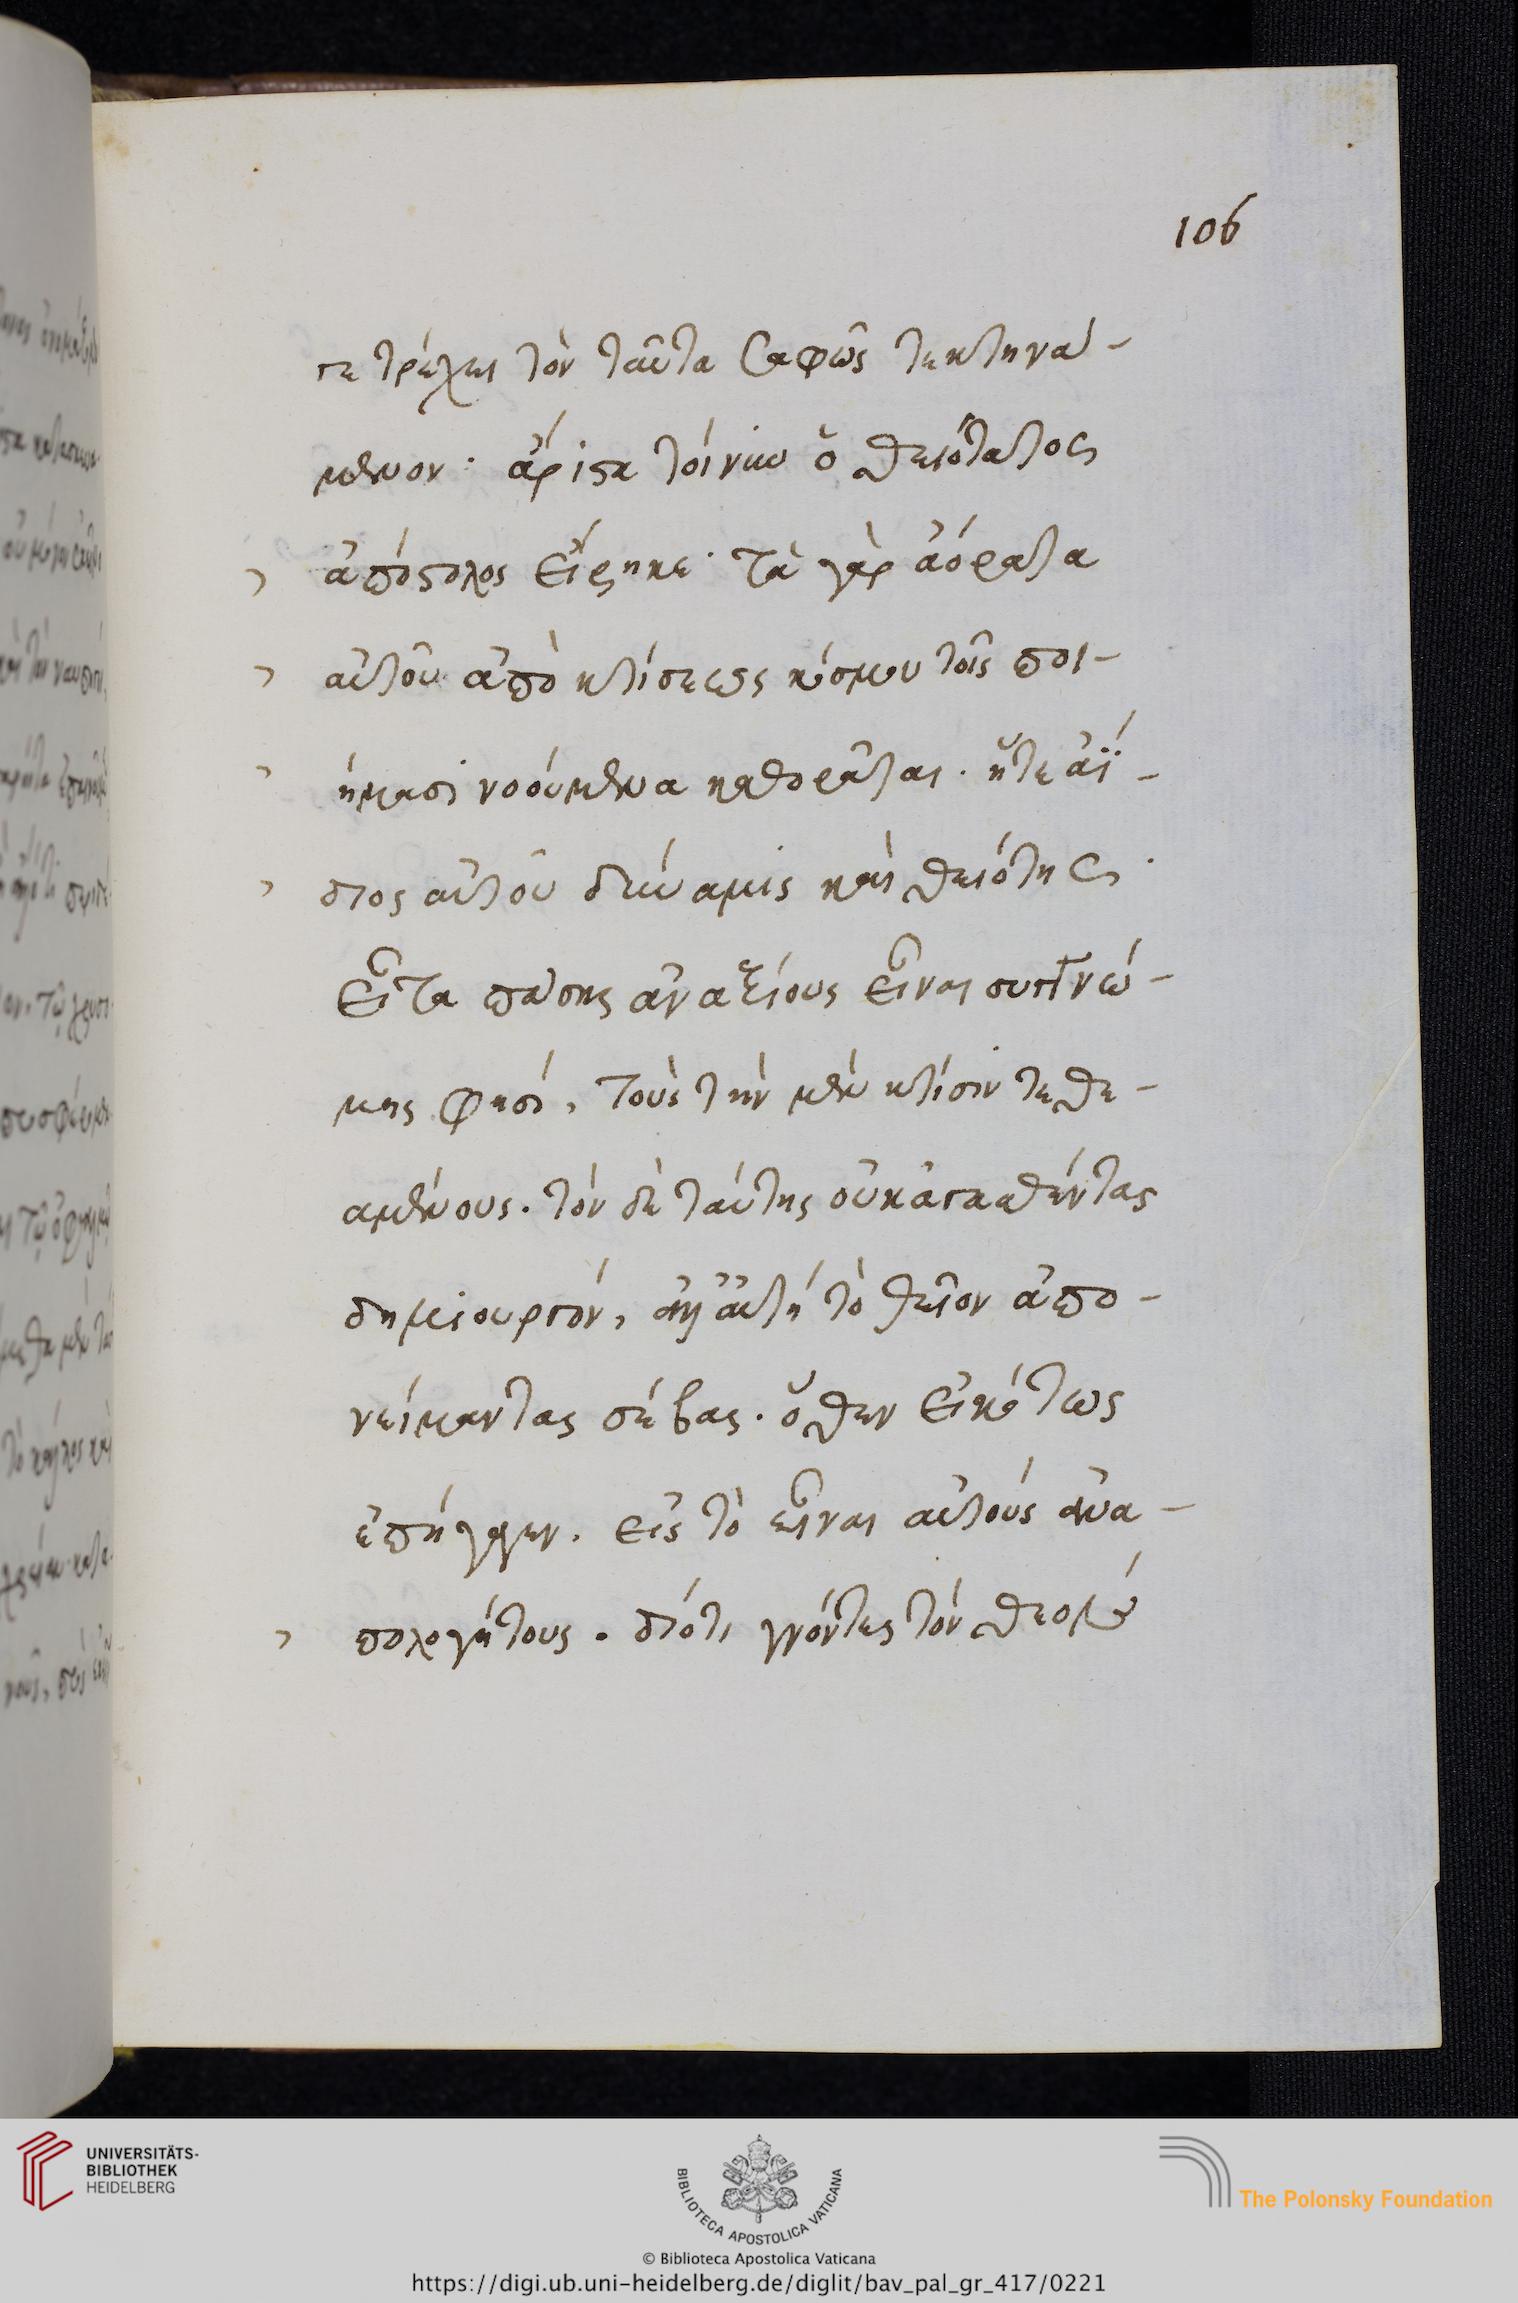 106
γε τρέχει τὸν ταῦτα σαφῶς τεκτηνά-
μενον· ἄριστα τοίνυν ὁ θειότατος
ἀπόστολος εἴρηκε· τὰ γὰρ ἀόρατα
αὐτοῦ ἀπὸ κτίσεως κόσμου τοῖς ποι-
ήμασι νοούμενα καθορᾶται. ἥτε ἀΐ-
διος αὐτοῦ δύναμις καὶ θειότης.
Εἶτα πάσης ἀναξίους εἶναι συγγνώ-
μης φησί, τοὺς τὴν μὲν κτίσιν τεθε-
αμένους. τὸν δὲ ταύτης οὐκ ἀγασθέντας
δημιουργόν, ἀλλ' αὐτῇ τὸ θεῖον ἀπο-
νείμαντας σέβας. ὅθεν εἰκότως
ἐπήγαγεν. εἰς τὸ εἶναι αὐτοὺς ἀνα-
πολογήτους. διότι γνόντες τὸν θεὸν
UNIVERSITÄTS-
BIBLIOTHEK
HEIDELBERG
BIBLIOTECA APOSTOLICA VATICANA
The Polonsky Foundation
© Biblioteca Apostolica Vaticana
https://digi.ub.uni-heidelberg.de/diglit/bav_pal_gr_417/0221